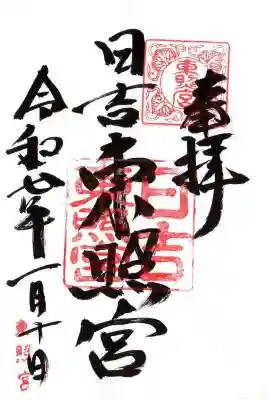 奉拝
東照宮
日吉東照宮
日吉東照宮
令和七年一月十日
東照宮